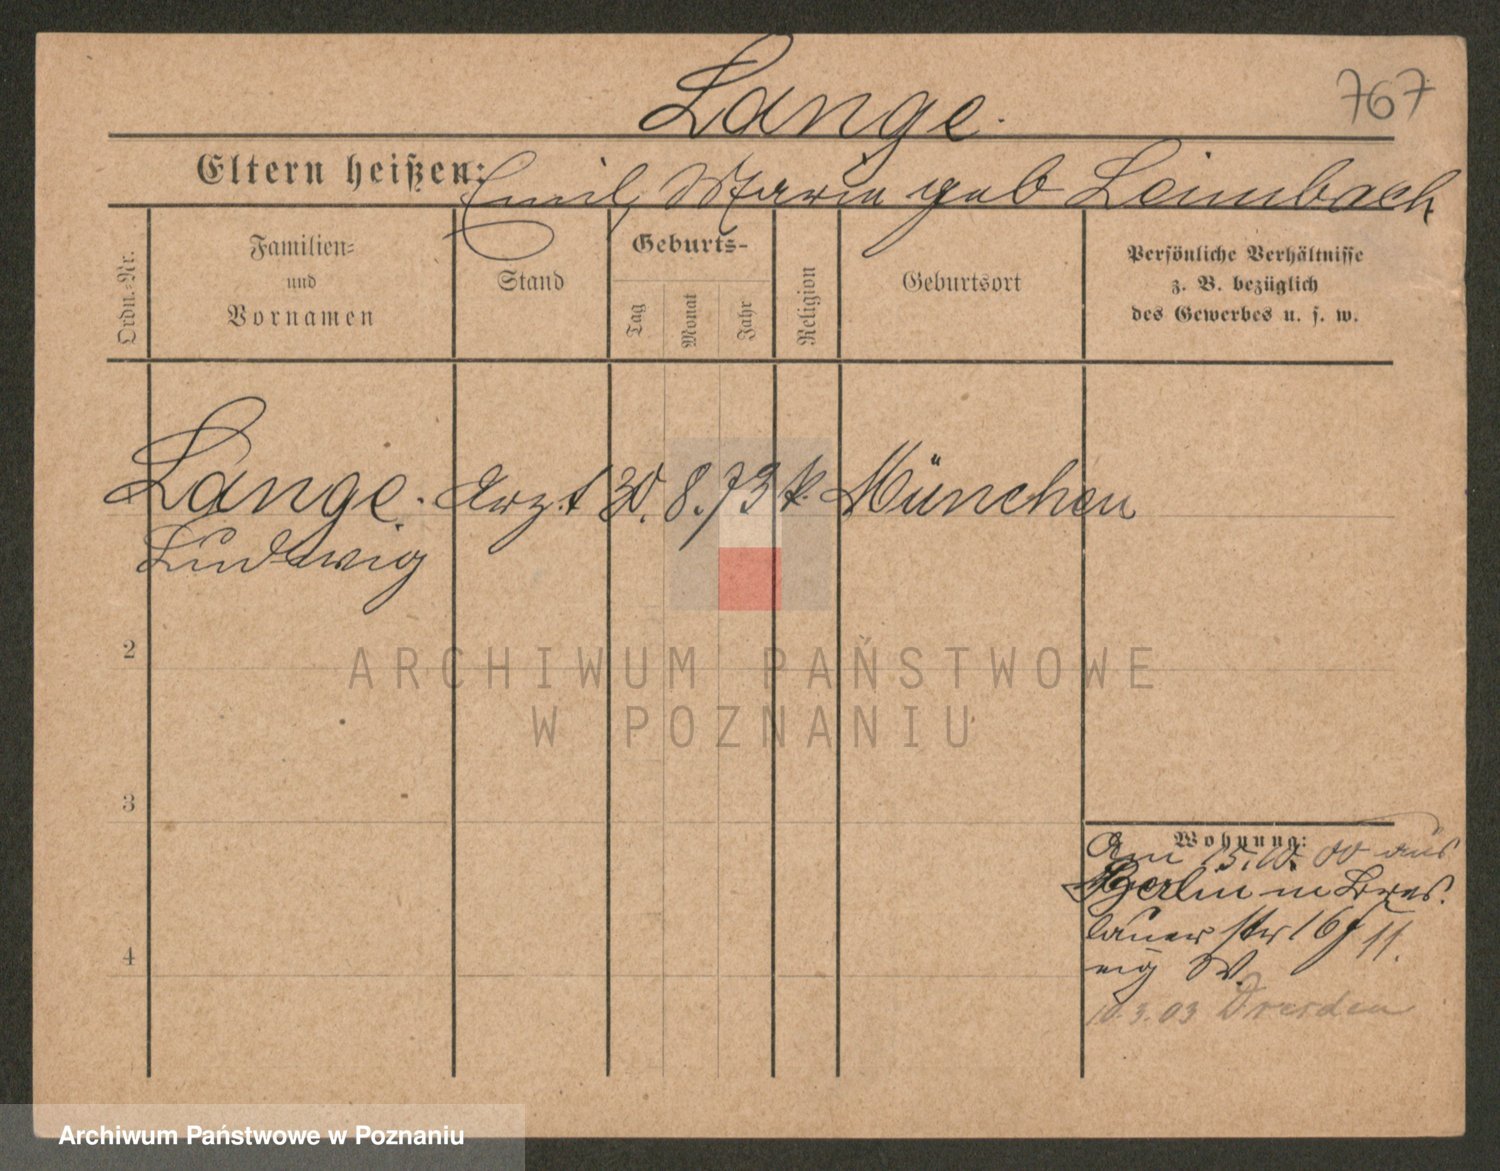 Lange.
767
Eltern heißen: Emil, Maria geb Leimbach
Ordn.-Nr.
Familien-
und
Vornamen
Stand
Geburts-
Tag
Monat
Jahr
Religion
Geburtsort
Persönliche Verhältnisse
z. B. bezüglich
des Gewerbes u. s. w.
Lange. Arzt 30. 8. 73 k. München
Ludwig
2
ARCHIWUM PAŃSTWOWE
W POZNANIU
3
Wohnung:
Am 15.10.00 aus
Berlin n Bres.
lauer str 16
4
W.
10.3.03 Dresden
Archiwum Państwowe w Poznaniu